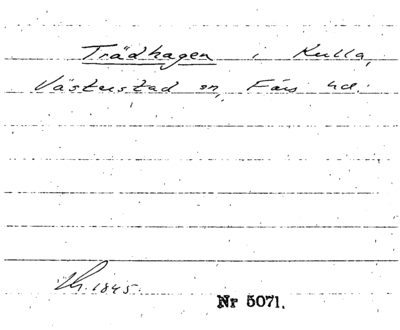 Trädhagen i Kulla,
Västerstad sn, Färs hd.
Lh. 1845.
Nr 5071.